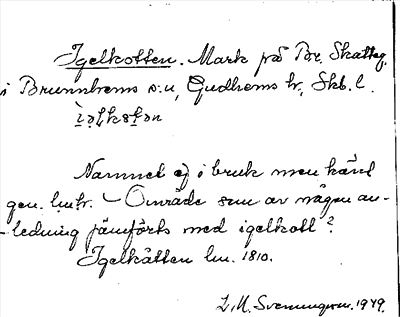 Igelkotten. Mark på Br. Skatteg.
i Brunnhems s:n, Gudhems hr, Skb. l.
Namnet ej i bruk men känt
gen. lm.hr. – Område som av någon an-
-ledning jämförts med igelkott?
Igelkåtten lm. 1810.
L.M. Svenungsson. 1949.